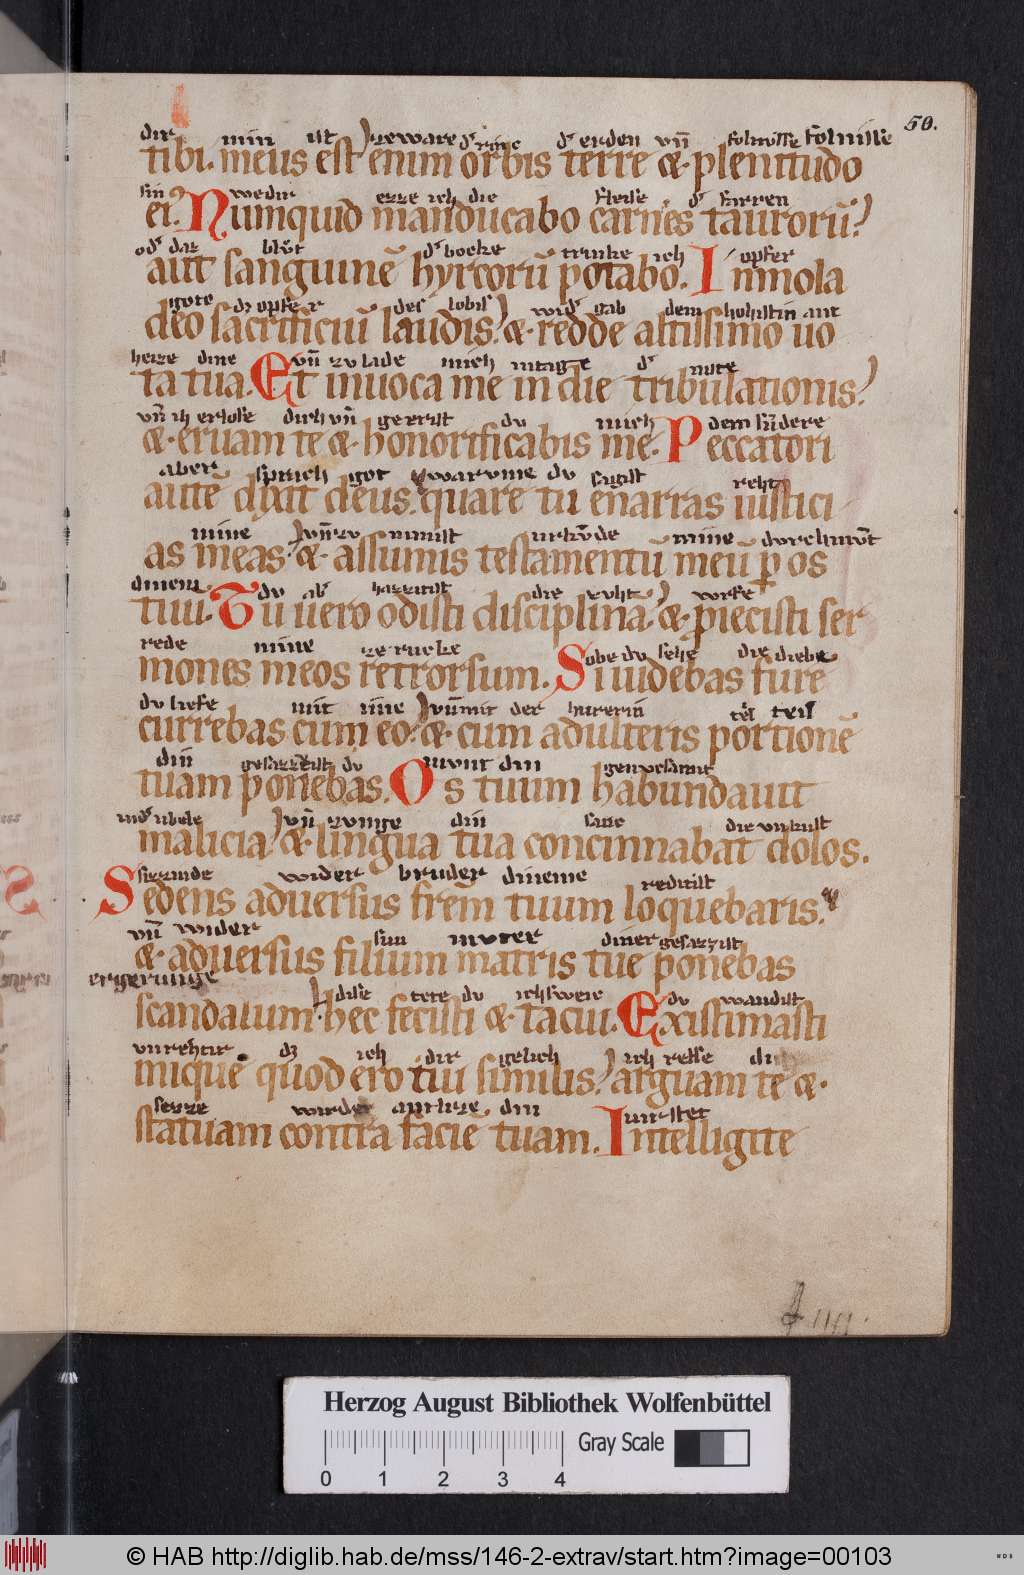 50.
dir min ist geware d erden vn̄ folnisse folnisse
tibi. meus est enim orbis terre ⁊ plenitudo
wedir ezze ich die fleisse d farren
ei. Numquid manducabo carnes taurorū?
od daz blůt d bocke trinke ich opfer
aut sanguinē hyrcorū potabo. Inmola
gote dz opfer des lobis wid gab dem hohistin ant
deo sacrificiū laudis. ⁊ redde altissimo uo
heize dine vn̄ zv lade mich d note
ta tua. Et inuoca me in die tribulationis?
vn̄ ih erlose dich vn̄ du mich dem sundere
⁊ eruam te ⁊ honorificabis me. Peccatori
aber sprach got warvme dv sagist reht
autē dixit deus. quare tu enarras iustici
mine vn̄ zv nimist mine dvrch mūt
as meas. ⁊ assumis testamentū meū p os
dinem dv ab hazzitist die wrfe
tuū. Tu uero odisti disciplinā. ⁊ piecisti ser
rede mine zerucke Sobe dv sehe die diebe
mones meos retrorsum. Si uidebas fure
dv liefe mit ime vn̄ mit der hurerin teil teil
currebas cum eo. ⁊ cum adulteris portionē
din dv munt din
tuam ponebas. Os tuum habundauit
vbele vn̄ zvnge din
malicia. ⁊ lingua tua concinnabat dolos.
wider bruder dineme reditist
Sedens aduersus frem̄ tuum loquebaris.
vn̄ wider sun mvter diner gesazzist
⁊ aduersus filium matris tue ponebas
ergerunge dise tete dv ich sweic dv wandist
scandalum. hec fecisti ⁊ tacui. Existimasti
vnrehtir dz ich dir gelich ich refse
mique quod ero tui similis? arguam te ⁊.
sezze wider antlize din
statuam contra facie tuam. Intelligite
Herzog August Bibliothek Wolfenbüttel
Gray Scale
0 1 2 3 4
© HAB http://diglib.hab.de/mss/146-2-extrav/start.htm?image=00103